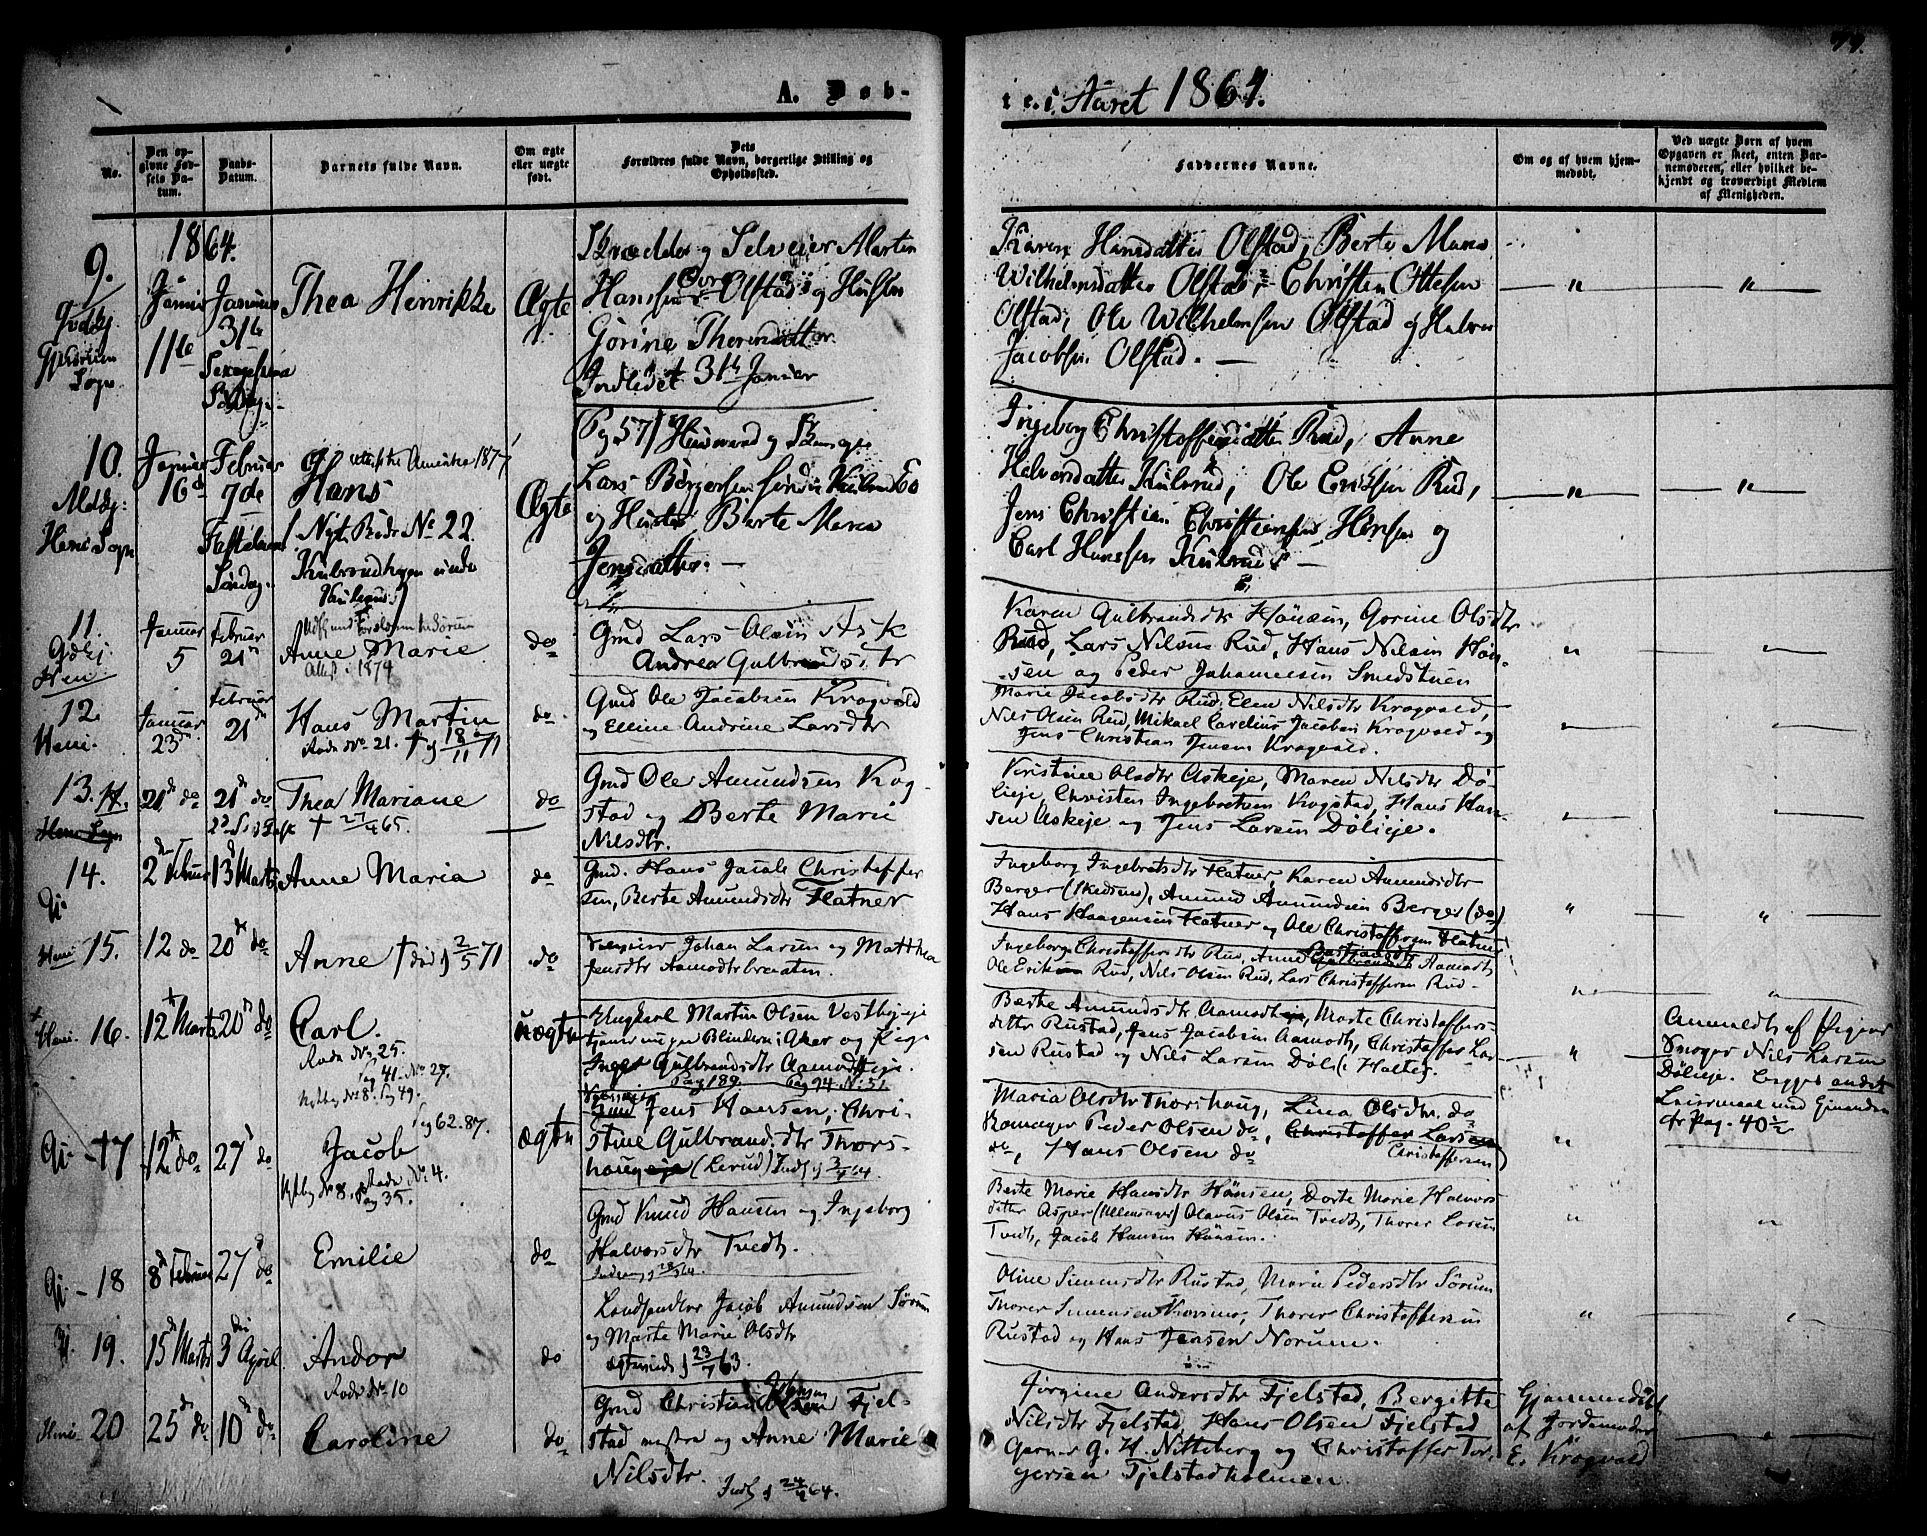 77.
A. Døb-
te. i Aaret 1864.
No.
Den opgivne Fødsels Datum.
Daabs-Datum.
Barnets fulde Navn.
Om ægte eller uægte født.
Dets Forældres fulde Navn, borgerlige Stilling og Opholdssted.
Faddernes Navne.
Om og af hvem hjemmedøbt.
Ved uægte Børn af hvem Opgaven er skeet, enten Barnemoderen, eller hvilket bekjendt og troværdigt Medlem af Menigheden.
1864.
9.
Gjerdrum Sogn
Januar 11te
Januar 31te
Sexagesima Søndag
Thea Henrikke
Ægte
Skrædder og Selveier Martin
Hanssen Olstad og Hustru
Gorine Thorersdatter
Indledet 31te Januar
Karen Hansdatter Olstad, Berte Maria
Wilhelmsdatter Olstad, Christen Ottesen
Olstad, Ole Wilhelmsen Olstad og Halvor
Jacobsen Olstad. —
10.
Heni Sogn
Januar 16de
Februar 7de
Fastelavns Søndag
attest til Amerika 1877
Hans
Nyt Rode No 22.
Kulsrudhagen
Ægte
(Pag 57) Huusmand og
Lars Børgersen søndre Kulsrud
og Hustru Berte Maria
Jensdatter. —
Ingeborg Christoffersdatter Rud, Anne
Halvorsdatter Kulsrud, Ole Ericksen Rud,
Jens Christian Christiansen Hønsen og
Carl Hanssen Kulsrud —
11.
Heni
Januar 5
Februar 21de
Anne Marie
Attest 1879
do
Gmd Lars Olsen Ask
Andrea Gulbrandsdtr
Karen Gulbrandsdtr Hønsen, Gorine Olsdtr
Rud, Lars Nilsen Rud, Hans Nilsen Høn-
sen og Peder Johannessen Smedstuen
12
Heni.
Januar 23d
Februar 21de
Hans Martin
Rode No 21. † 18/11 71
do.
Gmd Ole Jacobsen Kragvald
og Elline Andrine Larsdtr
Marie Jacobsdtr Rud, Elen Nilsdtr Kragvald,
Nils Olsen Rud, Mikael Carelius Jacobsen Kragvald og
Jens Christian Jensen Kragvald.
13.
Heni Sogn
21d do
21d do
2d S. i Fast
Thea Mariane
† 27/4 65.
do
Gmd Ole Amundsen Kog-
stad og Berte Marie
Nilsdtr.
Kristine Olsdtr Askeje, Maren Nilsdtr Dö-
lieje, Christen Ingebretsen Kogstad, Hans Han-
sen Askeje og Jens Larsen Dölieje.
14.
Gj.
2den Februar
13d Marts
Anne Maria
do
Gmd. Hans Jacob Christoffer
sen, Berte Amundsdtr Flatner
Ingeborg Ingebretsdtr Flatner, Karen Amundsdtr
Berger (Skedsmo), Amund Amundsen Berger (do)
Hans Haagensen Flatner og Ole Christoffersen Flatner
Heni 15.
12 do
20de do
Anne † død 2/5 71
do
Selveier Johan Larsen og Matthea
Jensdtr Aamodtbraaten.
Ingeborg Christoffersdtr Rud, Anne Gulbrandsdtr Aamodt,
Ole Eriksen Rud, Nils Olsen Rud, Lars Christoffersen Rud.
Heni 16.
12te Marts
20de do
Carl.
Rode No 25.
Pag 41. No 27.
Nytby No 8. Pag 49.
uægte
Ungkarl Martin Olsen Vestbyeje
tjener nu paa Blindern i Aker og Pige
Inger Gulbrandsdtr Aamodteje.
Pag 189. Pag 94. No 51
Berte Amundsdtr Aamodteje, Marte Christoffers-
datter Rustad, Jens Jacobsen Aamodt, Christoffer Lar-
sen Rustad og Nils Larsen Döli (Holter).
Anmeldt af Pigens
Svoger Nils Larsen
Dölieje. begges andet
Leiermaal
cfr Pag. 40½
Gj - 17
12te do
27d do
Pag 62.87.
Jacob
Rode No 4.
Nytby No 8. Pag 35.
ægte
Gmd Jens Hansen, Chri-
stine Gulbrandsdtr Thors-
haugeje (Lerud) Indl. 3/4 64.
Maria Olsdtr Thorshaug, Lina Olsdtr. do
Ramager Peder Olsen do, Christoffer Larsen
Christoffersen
do, Hans Olsen do
Gj - 18
8de Februar
27d do
Emilie
do
Gmd Knud Hansen og Ingeborg
Halvorsdtr Tvedt.
Berte Marie Hansdtr Hönsen, Dorte Marie Halvors
datter Asper (Ullensager) Olavus Olsen Tvedt, Thorer Larsen
Tvedt, Jacob Hansen Hönsen.
19.
15d Marts
3die April
Andor
Rode No 10
do
Landhandler Jacob Amundsen Sørum
og Marte Marie Olsdtr
ægteviede 23/7 63.
Oline Simensdtr Rustad, Marie Pedersdtr Sørum
Thorer Simensen Kovimo, Thorer Christoffersen
Rustad og Hans Jensen Norum.
Heni - 20
25de do
10de do
Caroline
do
Gmd Christian Hansen Fjel-
stad mestra og Anne Marie
Nilsdtr. Indl. 24/4 64.
Jørgine Andersdtr Fjelstad, Bergitte
Nilsdtr Fjelstad, Hans Olsen Fjelstad
Garver G. H. Nitteberg og Christoffer Tor-
gersen Fjelstadholmen.
Hjemmedöbt
af Jordemoder
E. Kragvald